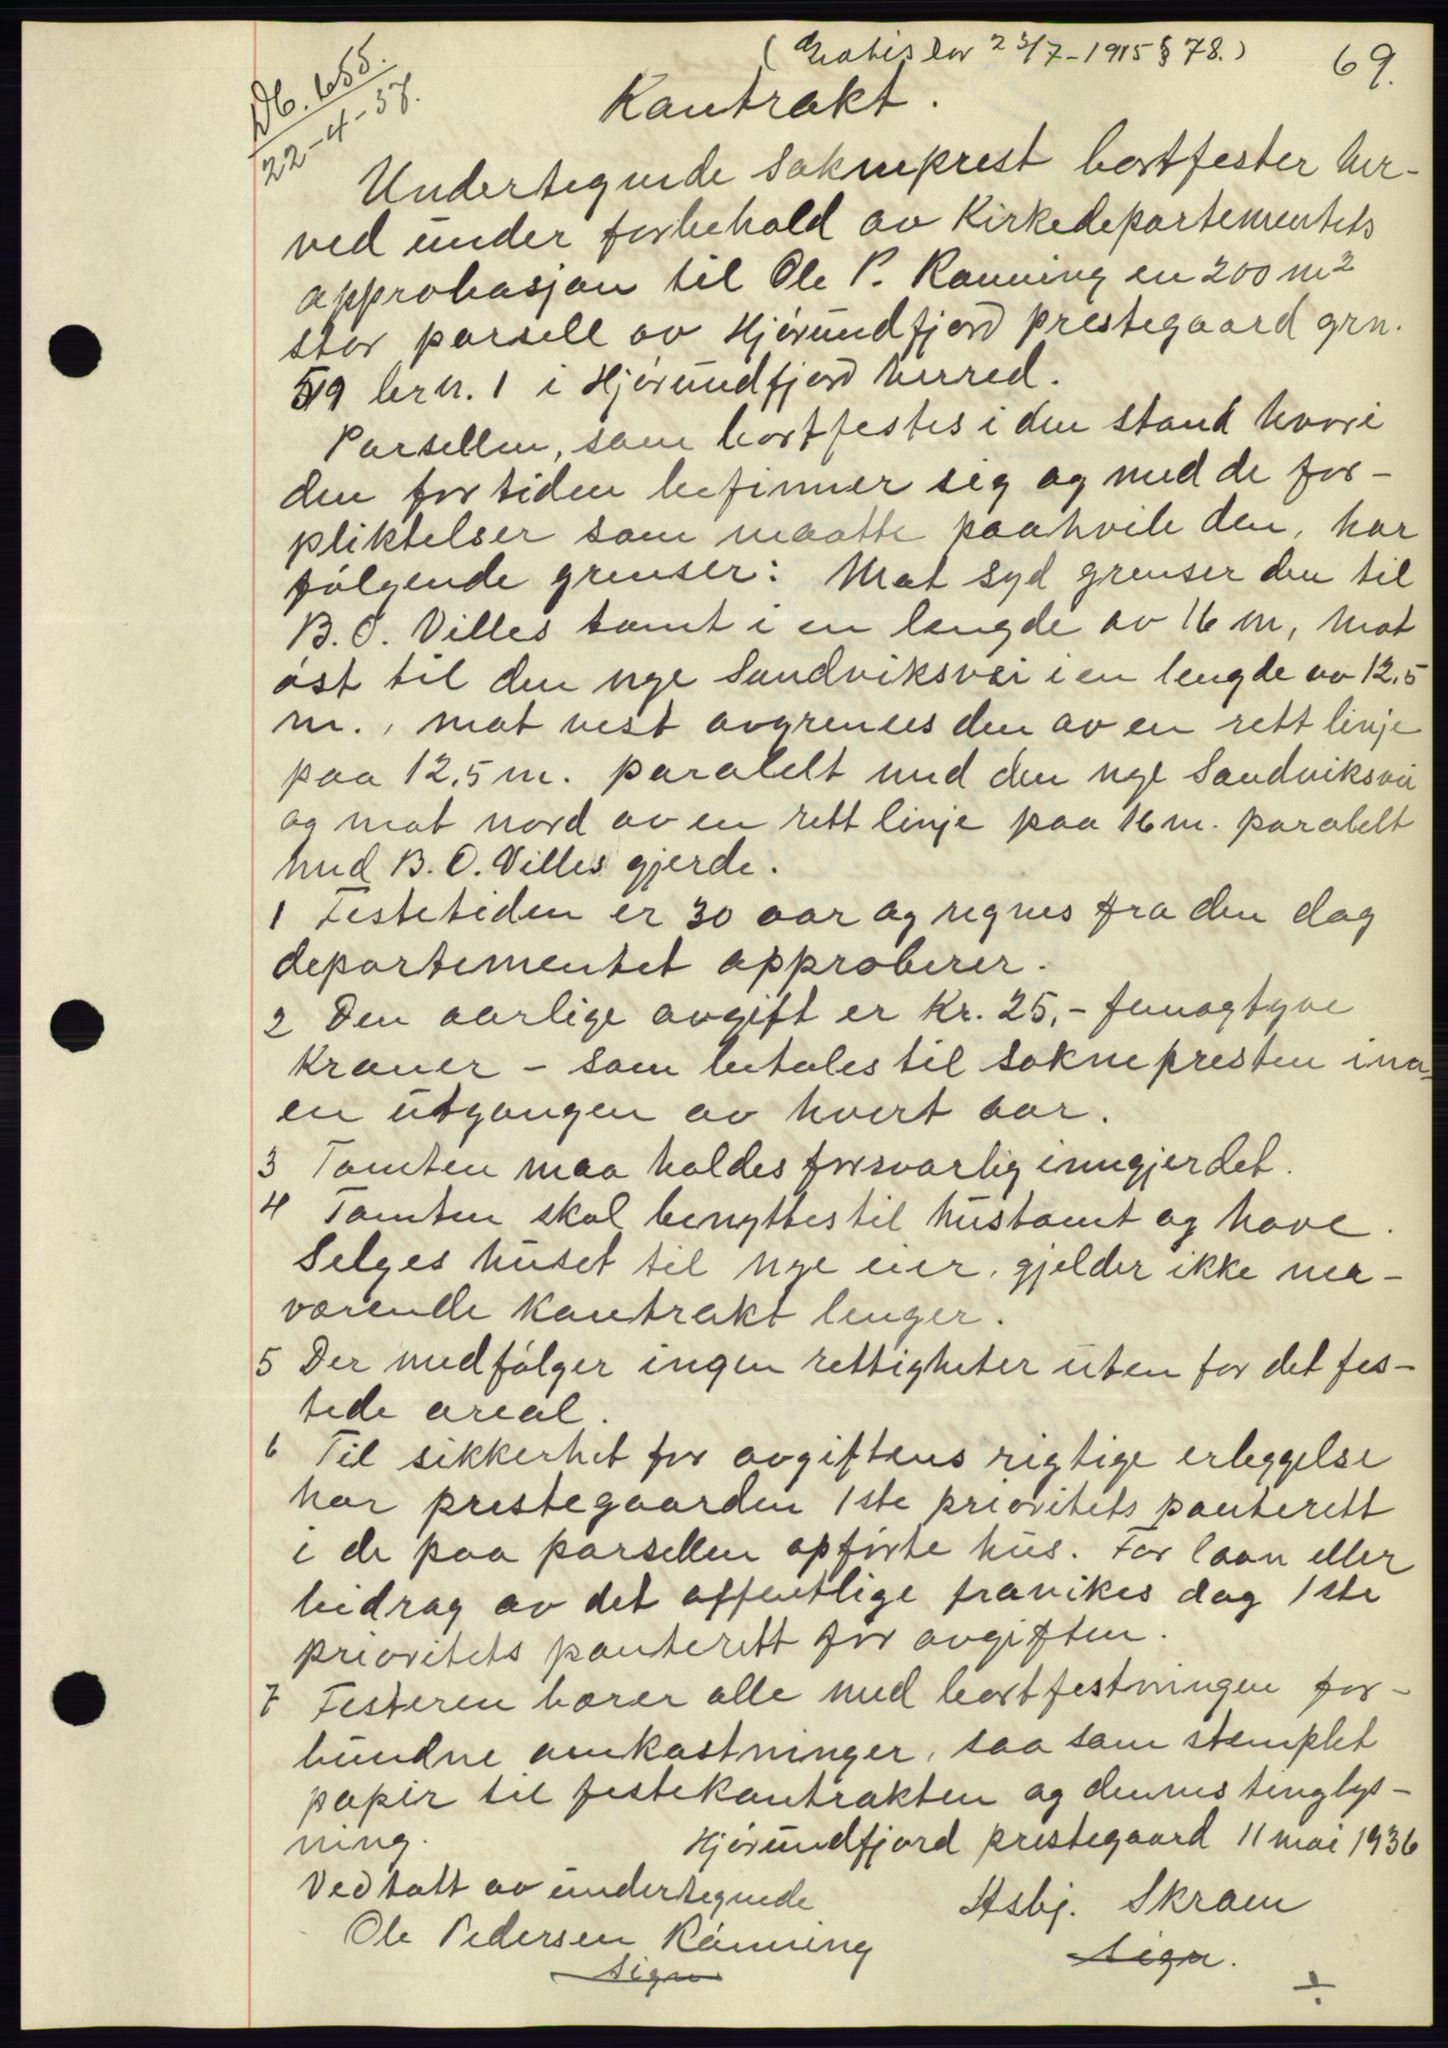 (Gratis lov 23/7-1915 § 78.)
69.
Db. 655.
22-4-37.
Kontrakt.
Undertegnede sokneprest bortfester her-
ved under forbehold av Kirkedepartementets
approbasjon til Ole P. Rönning en 200 m2
stor parsell av Hjörundfjord prestegaard grn.
59 brn. 1 i Hjörundfjord herred.
Parsellen, som bortfestes i den stand hvori
den for tiden befinner sig og med de for-
pliktelser som maatte paahvile den, har
fölgende grenser: Mot syd grenser den til
B. O. Villes tomt i en lengde av 16 m, mot
öst til den nye Sandviksvei i en lengde av 12,5
m., mot vest avgrenses den av en rett linje
paa 12,5 m. paralelt med den nye Sandviksvei
og mot nord av en rett linje paa 16 m. paralelt
med B. O. Villes gjerde.
1 Festetiden er 30 aar og regnes fra den dag
departementet approberer.
2 Den aarlige avgift er Kr. 25,- femogtyve
Kroner - som betales til soknepresten inn-
en utgangen av hvert aar.
3 Tomten maa holdes forsvarlig inngjerdet.
4 Tomten skal benyttes til hustomt og have.
Selges huset til nye eier, gjelder ikke nær-
værende kontrakt lenger.
5 Der medfölger ingen rettigheter uten for det fes-
tede areal.
6 Til sikkerhet for avgiftens rigtige erleggelse
har prestegaarden 1ste prioritets panterett
i de paa parsellen opförte hus. For laan eller
bidrag av det offentlige fravikes dog 1ste
prioritets panterett for avgiften.
7 Festeren bærer alle med bortfestningen for-
bundne omkostninger, saa som stemplet
papir til festekontrakten og dennes tinglys-
ning.
Hjörundfjord prestegaard 11 mai 1936
Vedtatt av undertegnede
Asbj. Skram
Ole Pedersen Rönning
sign.
sign
÷